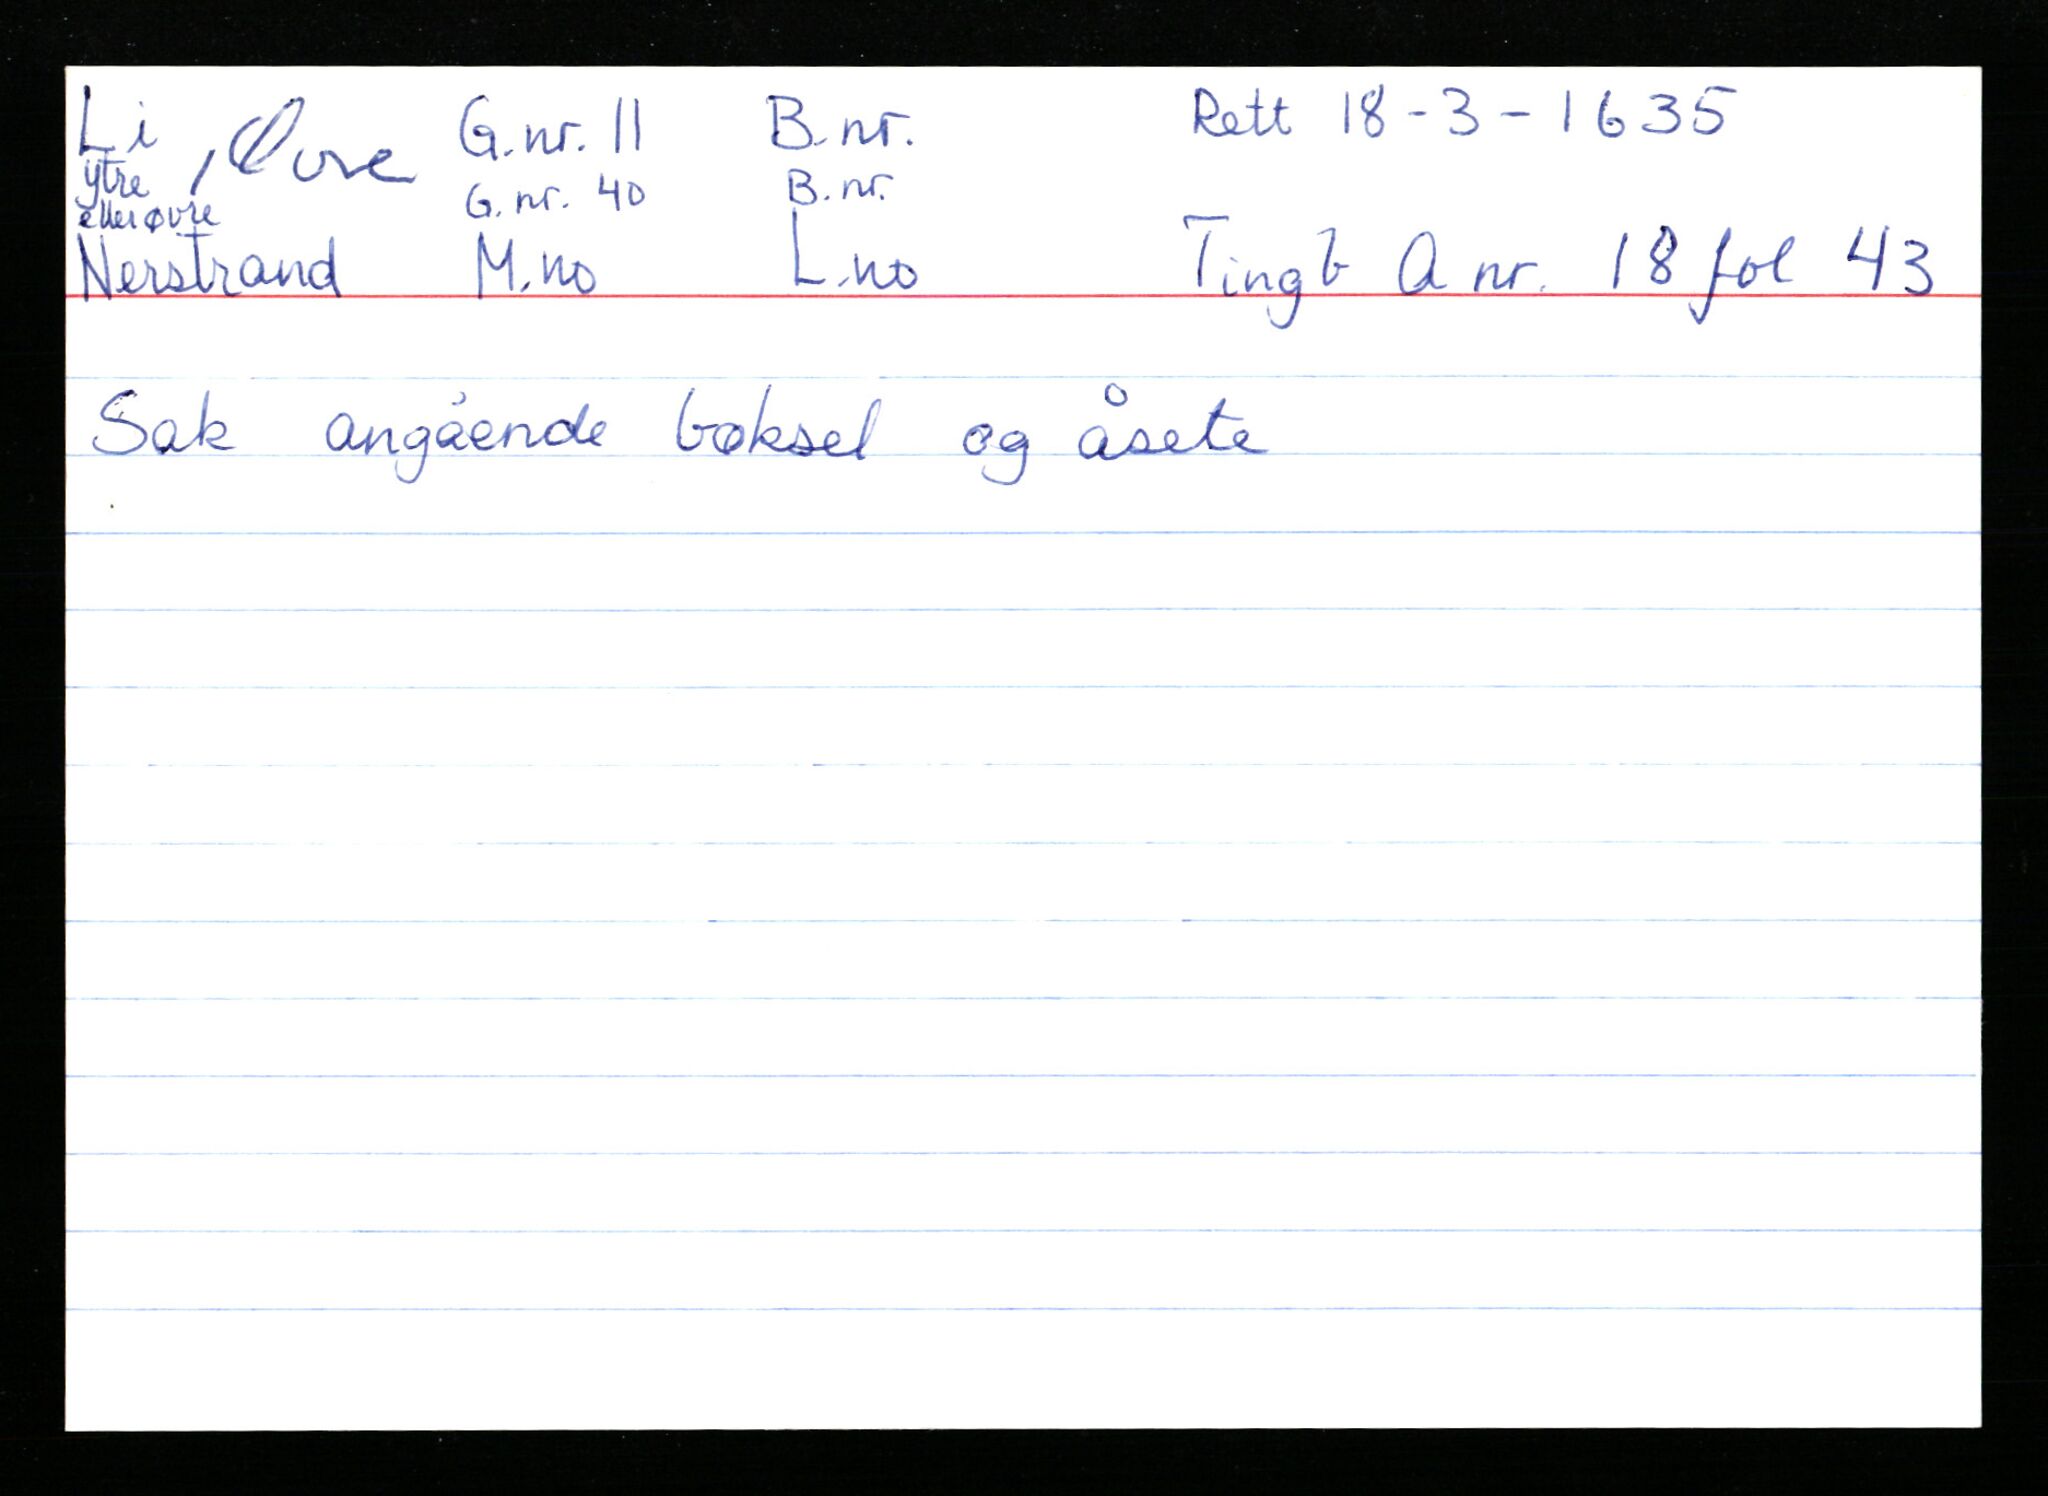 Li , Øvre G.nr. 11 B.nr. Rett 18-3-1635
ytre G.nr. 40 B.nr.
eller øvre
Nerstrand M.no L.no Tingb A nr. 18 fol 43
Sak angående bøksel og åsete